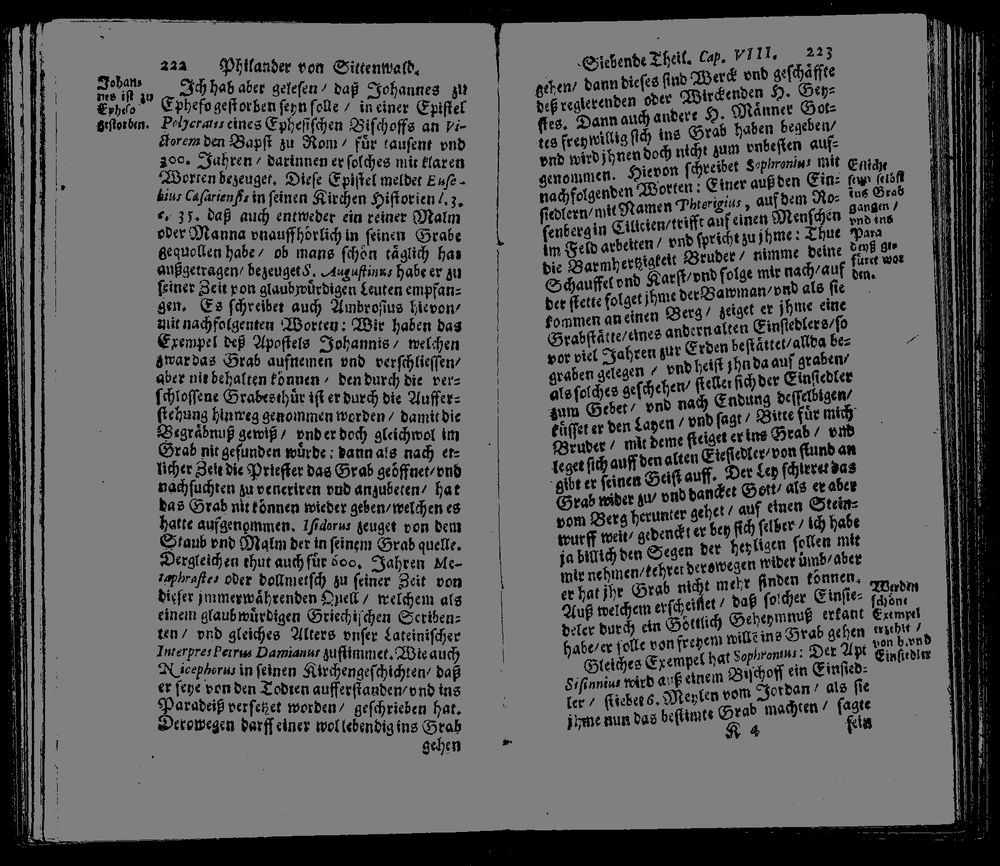 222 Philander von Sittenwald.
Johan-
nes ist zu
Epheso
gestorben.
Ich hab aber gelesen / daß Johannes zu
Epheso gestorben seyn solle / in einer Epistel
Polycratis eines Ephesischen Bischoffs an Vi-
ctorem den Bapst zu Rom / für tausent vnd
300. Jahren / darinnen er solches mit klaren
Worten bezeuget. Diese Epistel meldet Euse-
bius Cæsariensis in seinen Kirchen Historien l. 3.
c. 35. daß auch entweder ein reiner Malm
oder Manna vnauffhörlich in seinen Grabe
gequollen habe / ob mans schon täglich hat
außgetragen / bezeuget S. Augustinus habe er zu
seiner Zeit von glaubwürdigen Leuten empfan-
gen. Es schreibet auch Ambrosius hievon /
mit nachfolgenten Worten: Wir haben das
Exempel deß Apostels Johannis / welchen
zwar das Grab aufnemen vnd verschliessen /
aber nit behalten können / den durch die ver-
schlossene Grabesthür ist er durch die Auffer-
stehung hinweg genommen worden / damit die
Begräbnuß gewiß / vnd er doch gleichwol im
Grab nit gefunden würde: dann als nach et-
licher Zeit die Priester das Grab geöffnet / vnd
nachsuchten zu veneriren vnd anzubeten / hat
das Grab nit können wieder geben / welchen es
hatte aufgenommen. Isidorus zeuget von dem
Staub vnd Malm der in seinem Grab quelle.
Dergleichen thut auch für 600. Jahren Me-
taphrastes oder dollmetsch zu seiner Zeit von
dieser jmmerwährenden Quell / welchem als
einem glaubwürdigen Griechischen Scriben-
ten / vnd gleiches Alters vnser Lateinischer
Interpres Petrus Damianus zustimmet. Wie auch
Nicephorus in seinen Kirchengeschichten / daß
er seye von den Todten aufferstanden / vnd ins
Paradeiß versetzet worden / geschrieben hat.
Derowegen darff einer wol lebendig ins Grab
gehen
Siebende Theil. Cap. VIII. 223
gehen / dann dieses sind Werck vnd geschäffte
deß regierenden oder Wirckenden H. Gey-
stes. Dann auch andere H. Männer Got-
tes freywillig sich ins Grab haben begeben /
vnd wird jhnen doch nicht zum vnbesten auf-
genommen. Hievon schreibet Sophronius mit
nachfolgenden Worten: Einer auß den Ein-
siedlern / mit Namen Phterigius, auf dem Ro-
senberg in Cilicien / trifft auf einen Menschen
im Feld arbeiten / vnd spricht zu jhme: Thue
die Barmhertzigkeit Bruder / nimme deine
Schauffel vnd Karst / vnd folge mir nach / auf
der stette folget jhme der Bawman / vnd als sie
kommen an einen Berg / zeiget er jhme eine
Grabstätte / eines andern alten Einsiedlers / so
vor viel Jahren zur Erden bestättet / allda be-
graben gelegen / vnd heist jhn da auf graben /
als solches geschehen / stellet sich der Einsiedler
zum Gebet / vnd nach Endung desselbigen /
küsset er den Layen / vnd sagt / Bitte für mich
Bruder / mit deme steiget er ins Grab / vnd
leget sich auff den alten Eiesiedler / von stund an
gibt er seinen Geist auff. Der Ley schirret das
Grab wider zu / vnd dancket Gott / als er aber
vom Berg herunter gehet / auf einen Stein-
wurff weit / gedenckt er bey sich selber / ich habe
ja billich den Segen der heyligen sollen mit
mir nehmen / kehret derowegen wider ümb / aber
er hat jhr Grab nicht mehr finden können.
Auß welchem erscheinet / daß solcher Einsie-
deler durch ein Göttlich Geheymnuß erkant
habe / er solle von freyem wille ins Grab gehen
Gleiches Exempel hat Sophronius: Der Apt
Sisinnius wird auß einem Bischoff ein Einsied-
ler / stiebet 6. Meylen vom Jordan / als sie
jhme nun das bestimte Grab machten / sagte
K 4 sein
Etliche
seyn selbst
ins Grab
gangen /
vnd ins
Para
deyß ge-
füret wor
den.
Werden
schöne
Exempel
erzehlt /
von h. vnd
Einsiedler